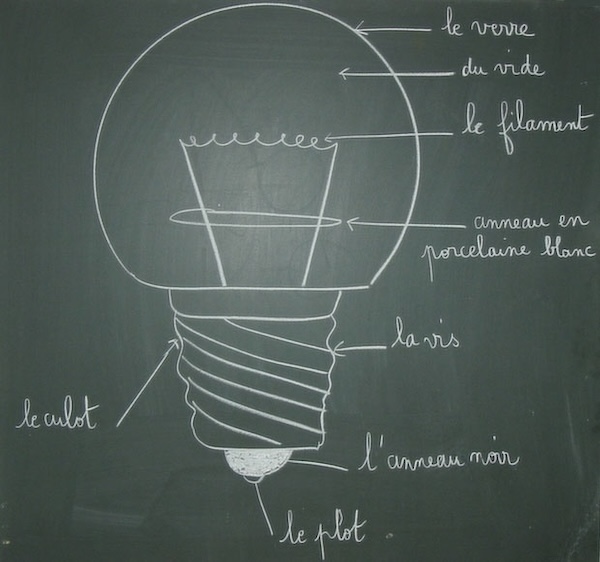 le verre
du vide
le filament
anneau en
porcelaine blanc
la vis
le culot
l'anneau noir
le plot